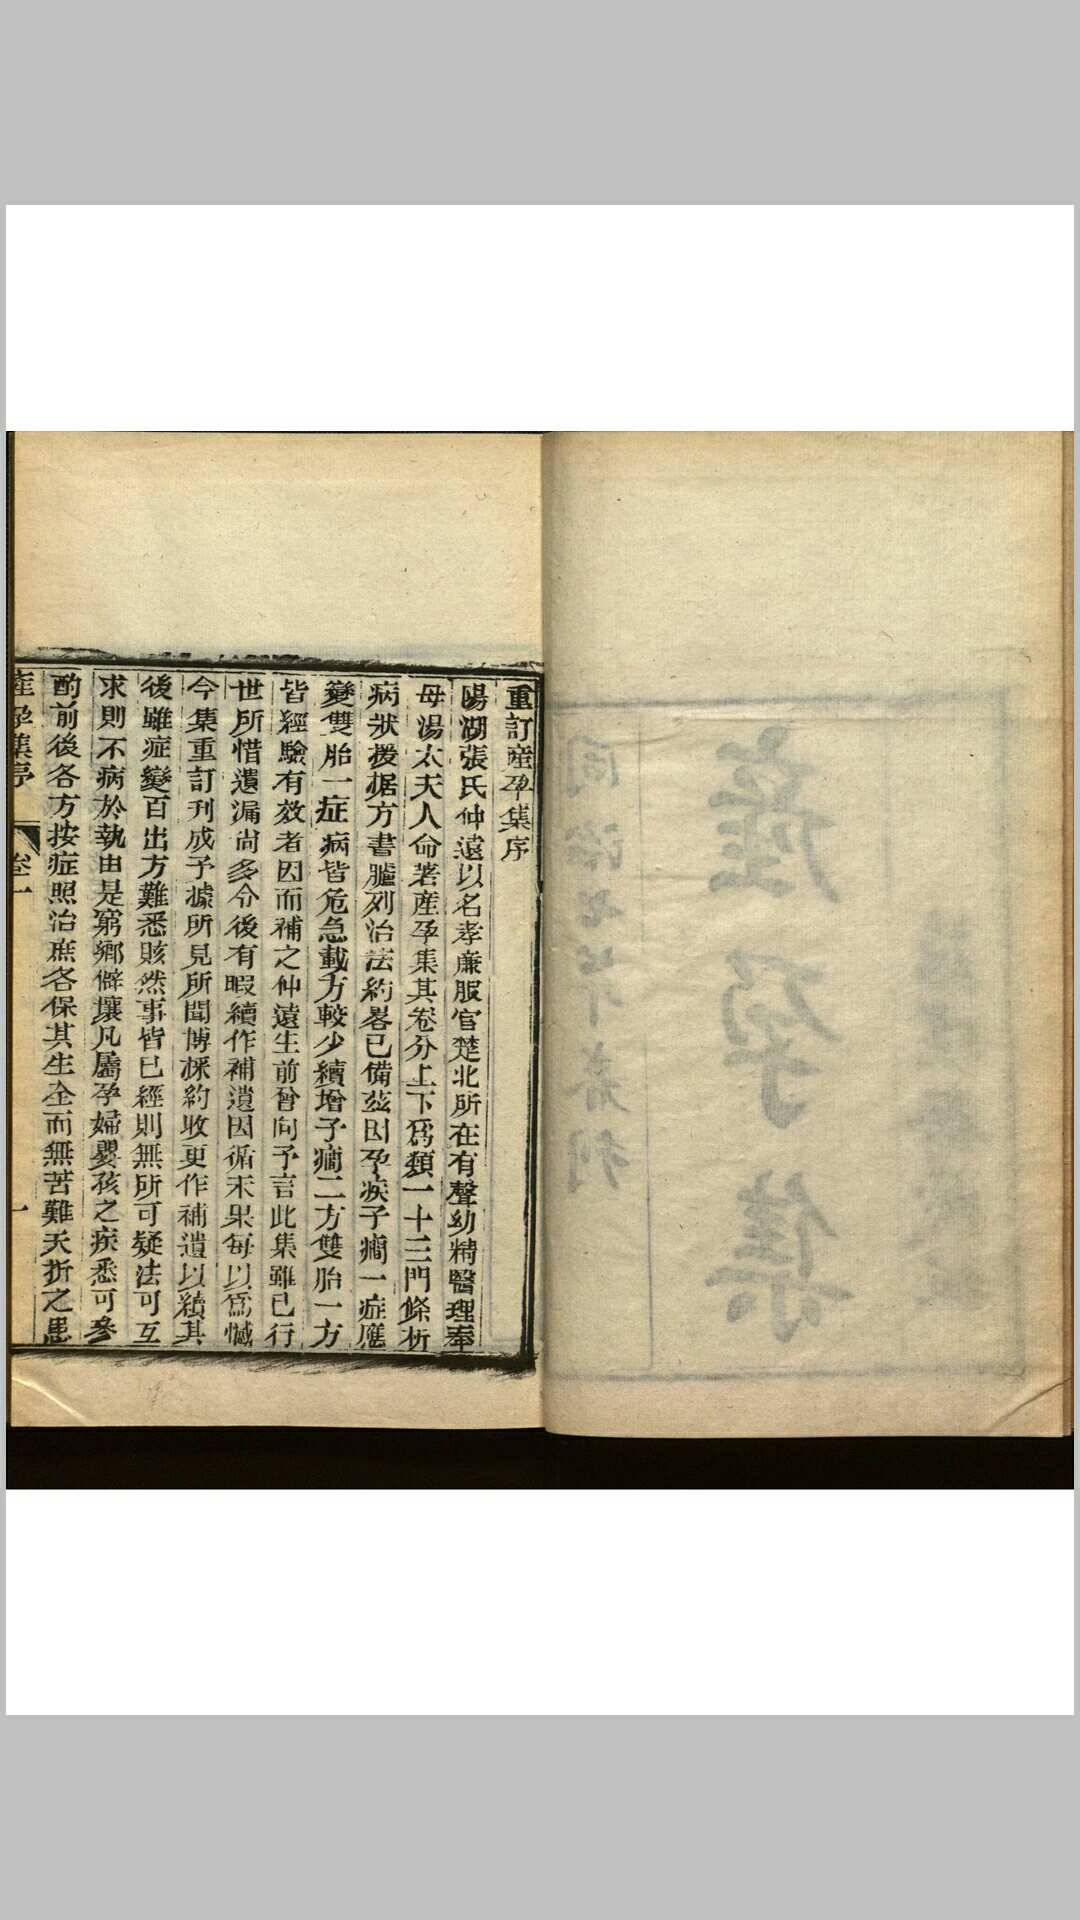 重訂產孕集序
陽湖張氏仲遠以名孝廉服官楚北所在有聲幼精醫理奉
母湯太夫人命著產孕集其卷分上下爲類一十三門條析
病狀援据方書臚列治法約畧已備茲因孕疾子癎一症應
變雙胎一症病皆危急載方較少續增子癎二方雙胎一方
皆經驗有效者因而補之仲遠生前曾向予言此集雖已行
世所惜遺漏尚多今後有暇續作補遺因循未果每以爲憾
今集重訂刊成予據所見所聞博採約收更作補遺以續其
後雖症變百出方難悉賅然事皆已經則無所可疑法可互
求則不病於執由是窮鄉僻壤凡屬孕婦嬰孩之疾悉可參
酌前後各方按症照治庶各保其生全而無苦難夭折之患
產孕集序
卷一
一
產孕集